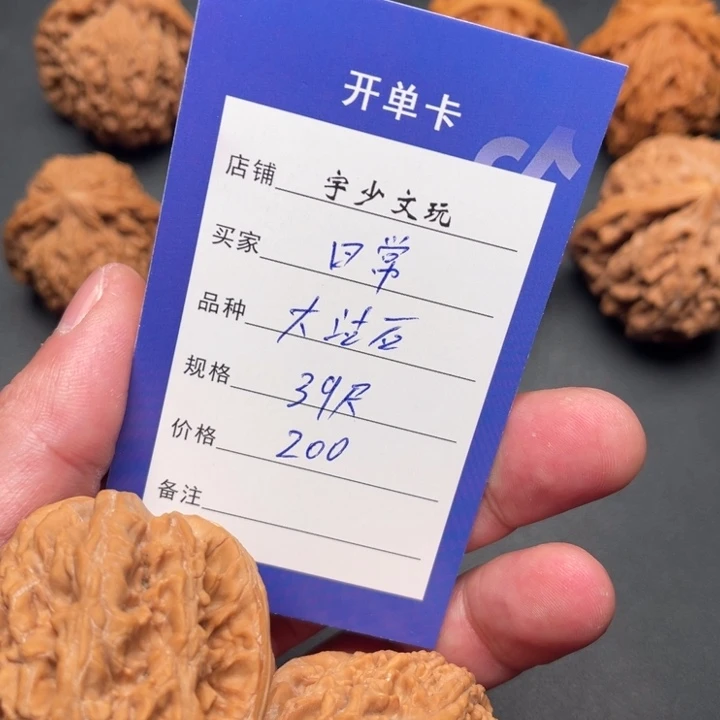 开单卡
店铺 宇少文玩
买家 日常
品种
规格 39尺
价格 200
备注